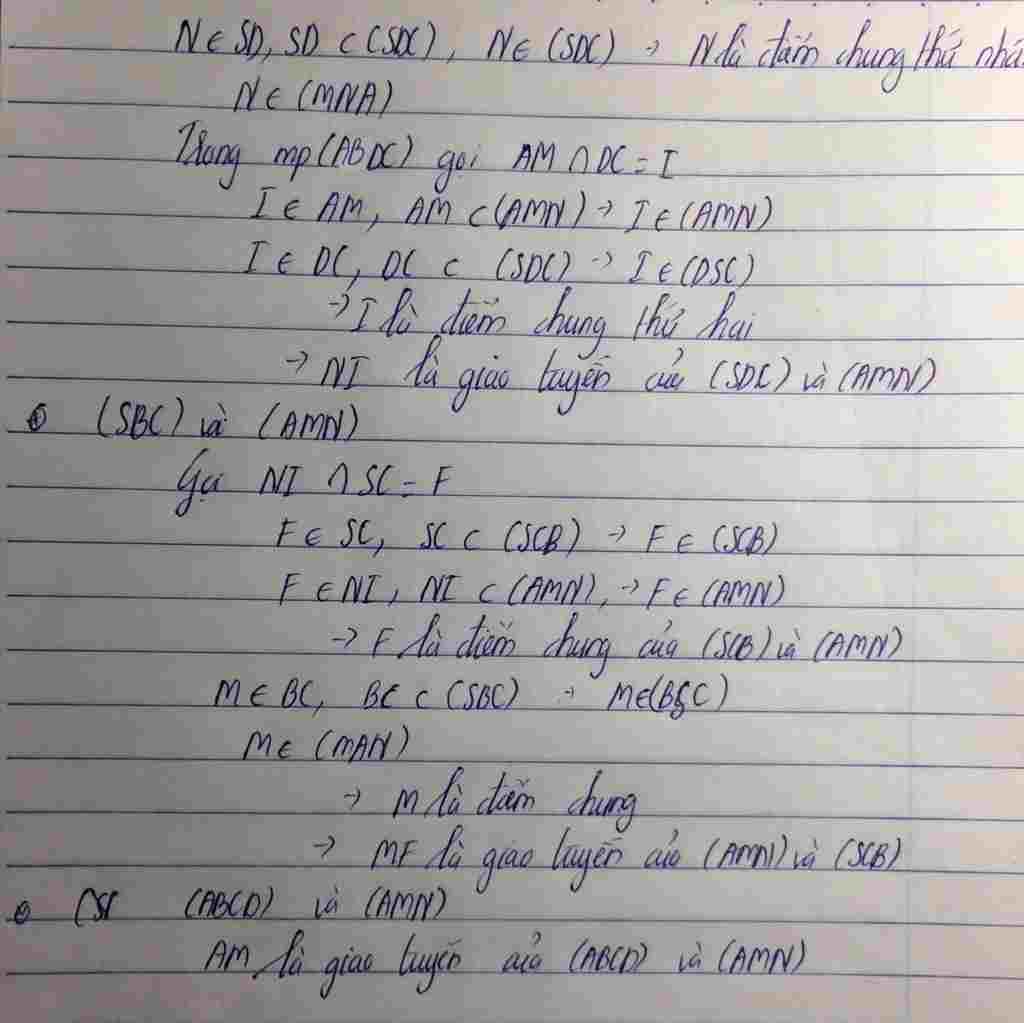 N ∈ SD, SD ⊂ (SDC), N ∈ (SDC) → N là điểm chung thứ nhấ
N ∈ (MNA)
Trong mp(ABDC) gọi AM ∩ DC = I
I ∈ AM, AM ⊂ (AMN) → I ∈ (AMN)
I ∈ DC, DC ⊂ (SDC) → I ∈ (DSC)
→ I là điểm chung thứ hai
→ NI là giao tuyến của (SDC) và (AMN)
(SBC) và (AMN)
Gọi NI ∩ SC = F
F ∈ SC, SC ⊂ (SCB) → F ∈ (SCB)
F ∈ NI, NI ⊂ (AMN), → F ∈ (AMN)
→ F là điểm chung của (SCB) và (AMN)
M ∈ BC, BC ⊂ (SBC) → M ∈ (BSC)
M ∈ (MAN)
→ M là điểm chung
→ MF là giao tuyến của (AMN) và (SCB)
(SC (ABCD) và (AMN)
AM là giao tuyến của (ABCD) và (AMN)